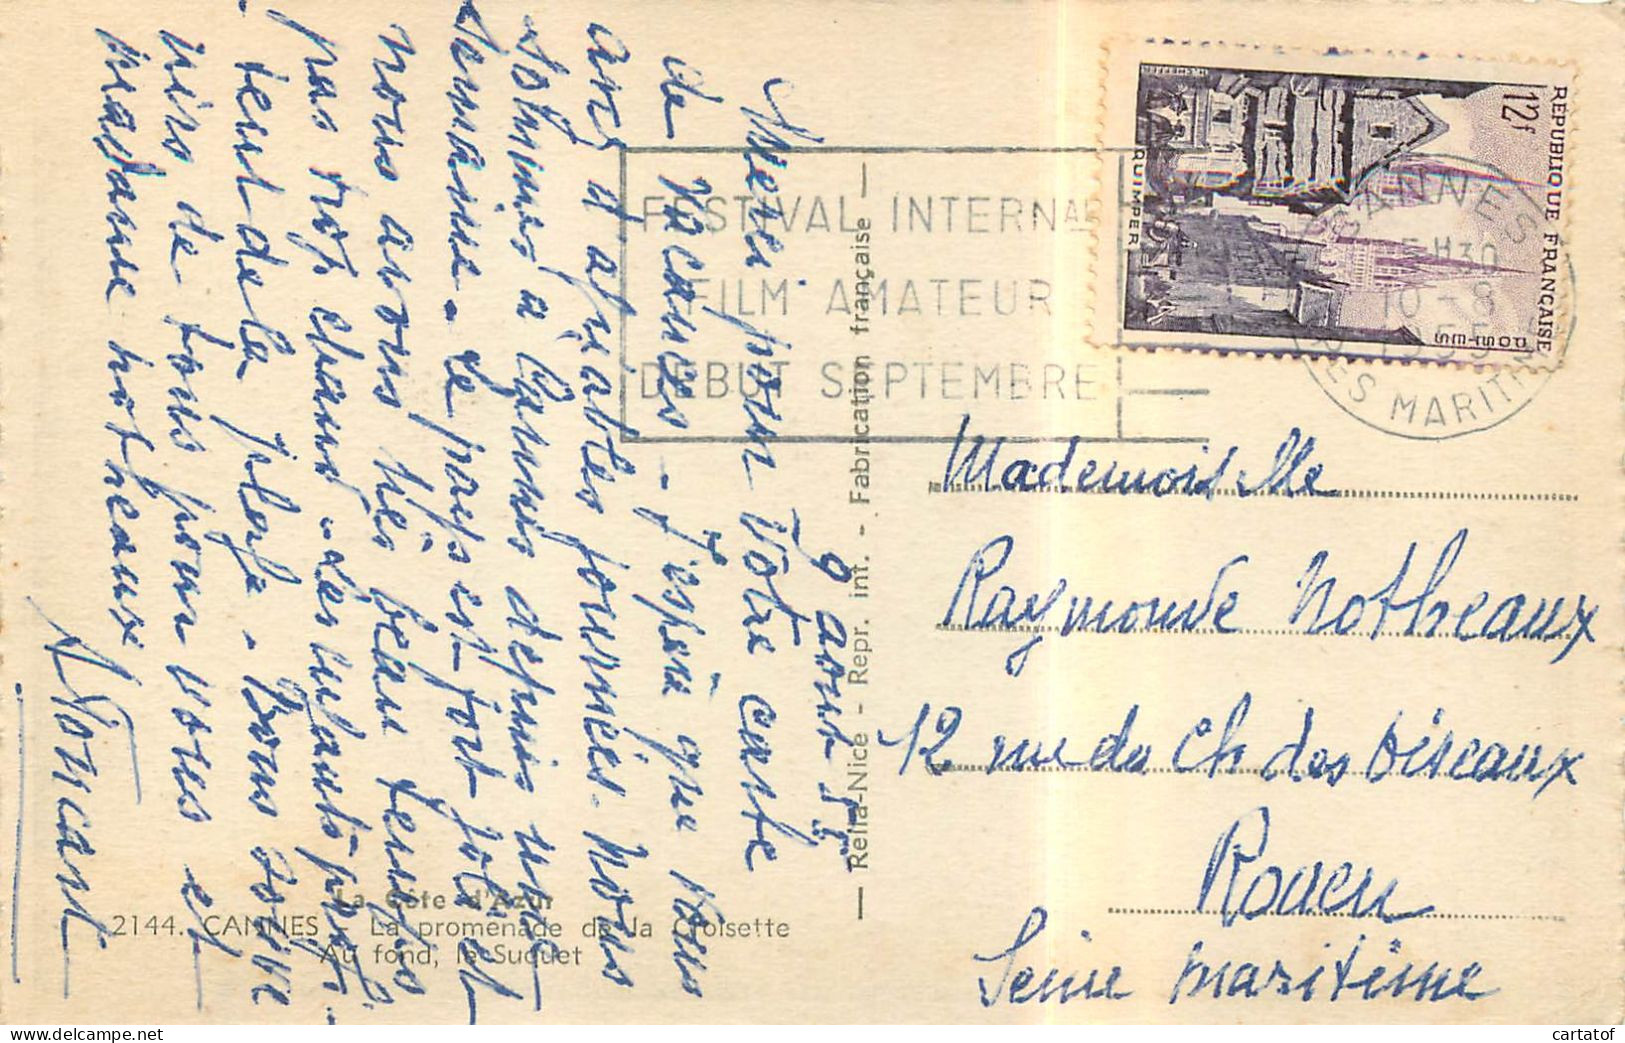 9 août 55
Merci pour votre carte
de vacances. J'espère que vous
avez d'agréables journées. Nous
sommes à Cannes depuis une
semaine. Le pays est fort joli et
nous avons très beau temps
pas trop chaud. Les enfants profi-
tent de la plage. Bons souve
nirs de tous pour vous et
madame Notheaux
Mademoiselle
Raymonde Notheaux
12 rue du Ch des Oiseaux
Rouen
Seine maritime
La Côte d'Azur
2144. CANNES - La promenade de la Croisette
Au fond, le Suquet
— Rella-Nice - Repr. int. - Fabrication française —
FESTIVAL INTERNAL
FILM AMATEUR
DEBUT SEPTEMBRE
CANNES
15H30
10-8
1955
ALPES MARITIMES
12f
REPUBLIQUE FRANÇAISE
POSTES
QUIMPER
cartatof